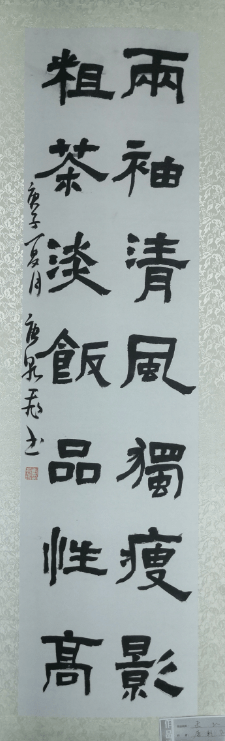 兩袖清風獨瘦影
粗茶淡飯品性高
庚子夏月